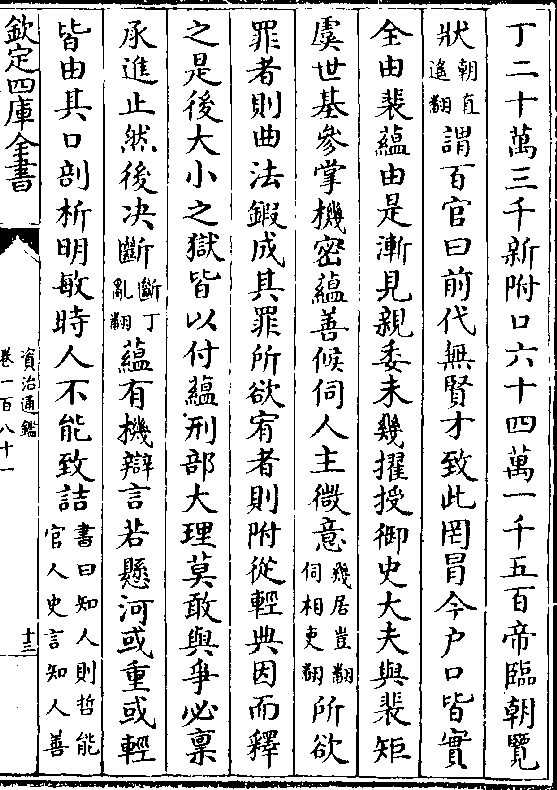 丁二十萬三千新附口六十四萬一千五百帝臨朝覽
狀朝直遙翻謂百官曰前代無賢才致此罔冒今户口皆實
全由裴蘊由是漸見親委未幾擢授御史大夫與裴矩
虞世基參掌機密蘊善候伺人主微意幾居豈翻伺相吏翻所欲
罪者則曲法鍜成其罪所欲宥者則附從輕典因而釋
之是後大小之獄皆以付蘊刑部大理莫敢與爭必稟
承進止然後决斷斷丁亂翻蘊有機辯言若懸河或重或輕
皆由其口剖析明敏時人不能致詰書曰知人則哲能官人史言知人善
欽定四庫全書
資治通鑑
卷一百八十一
十三